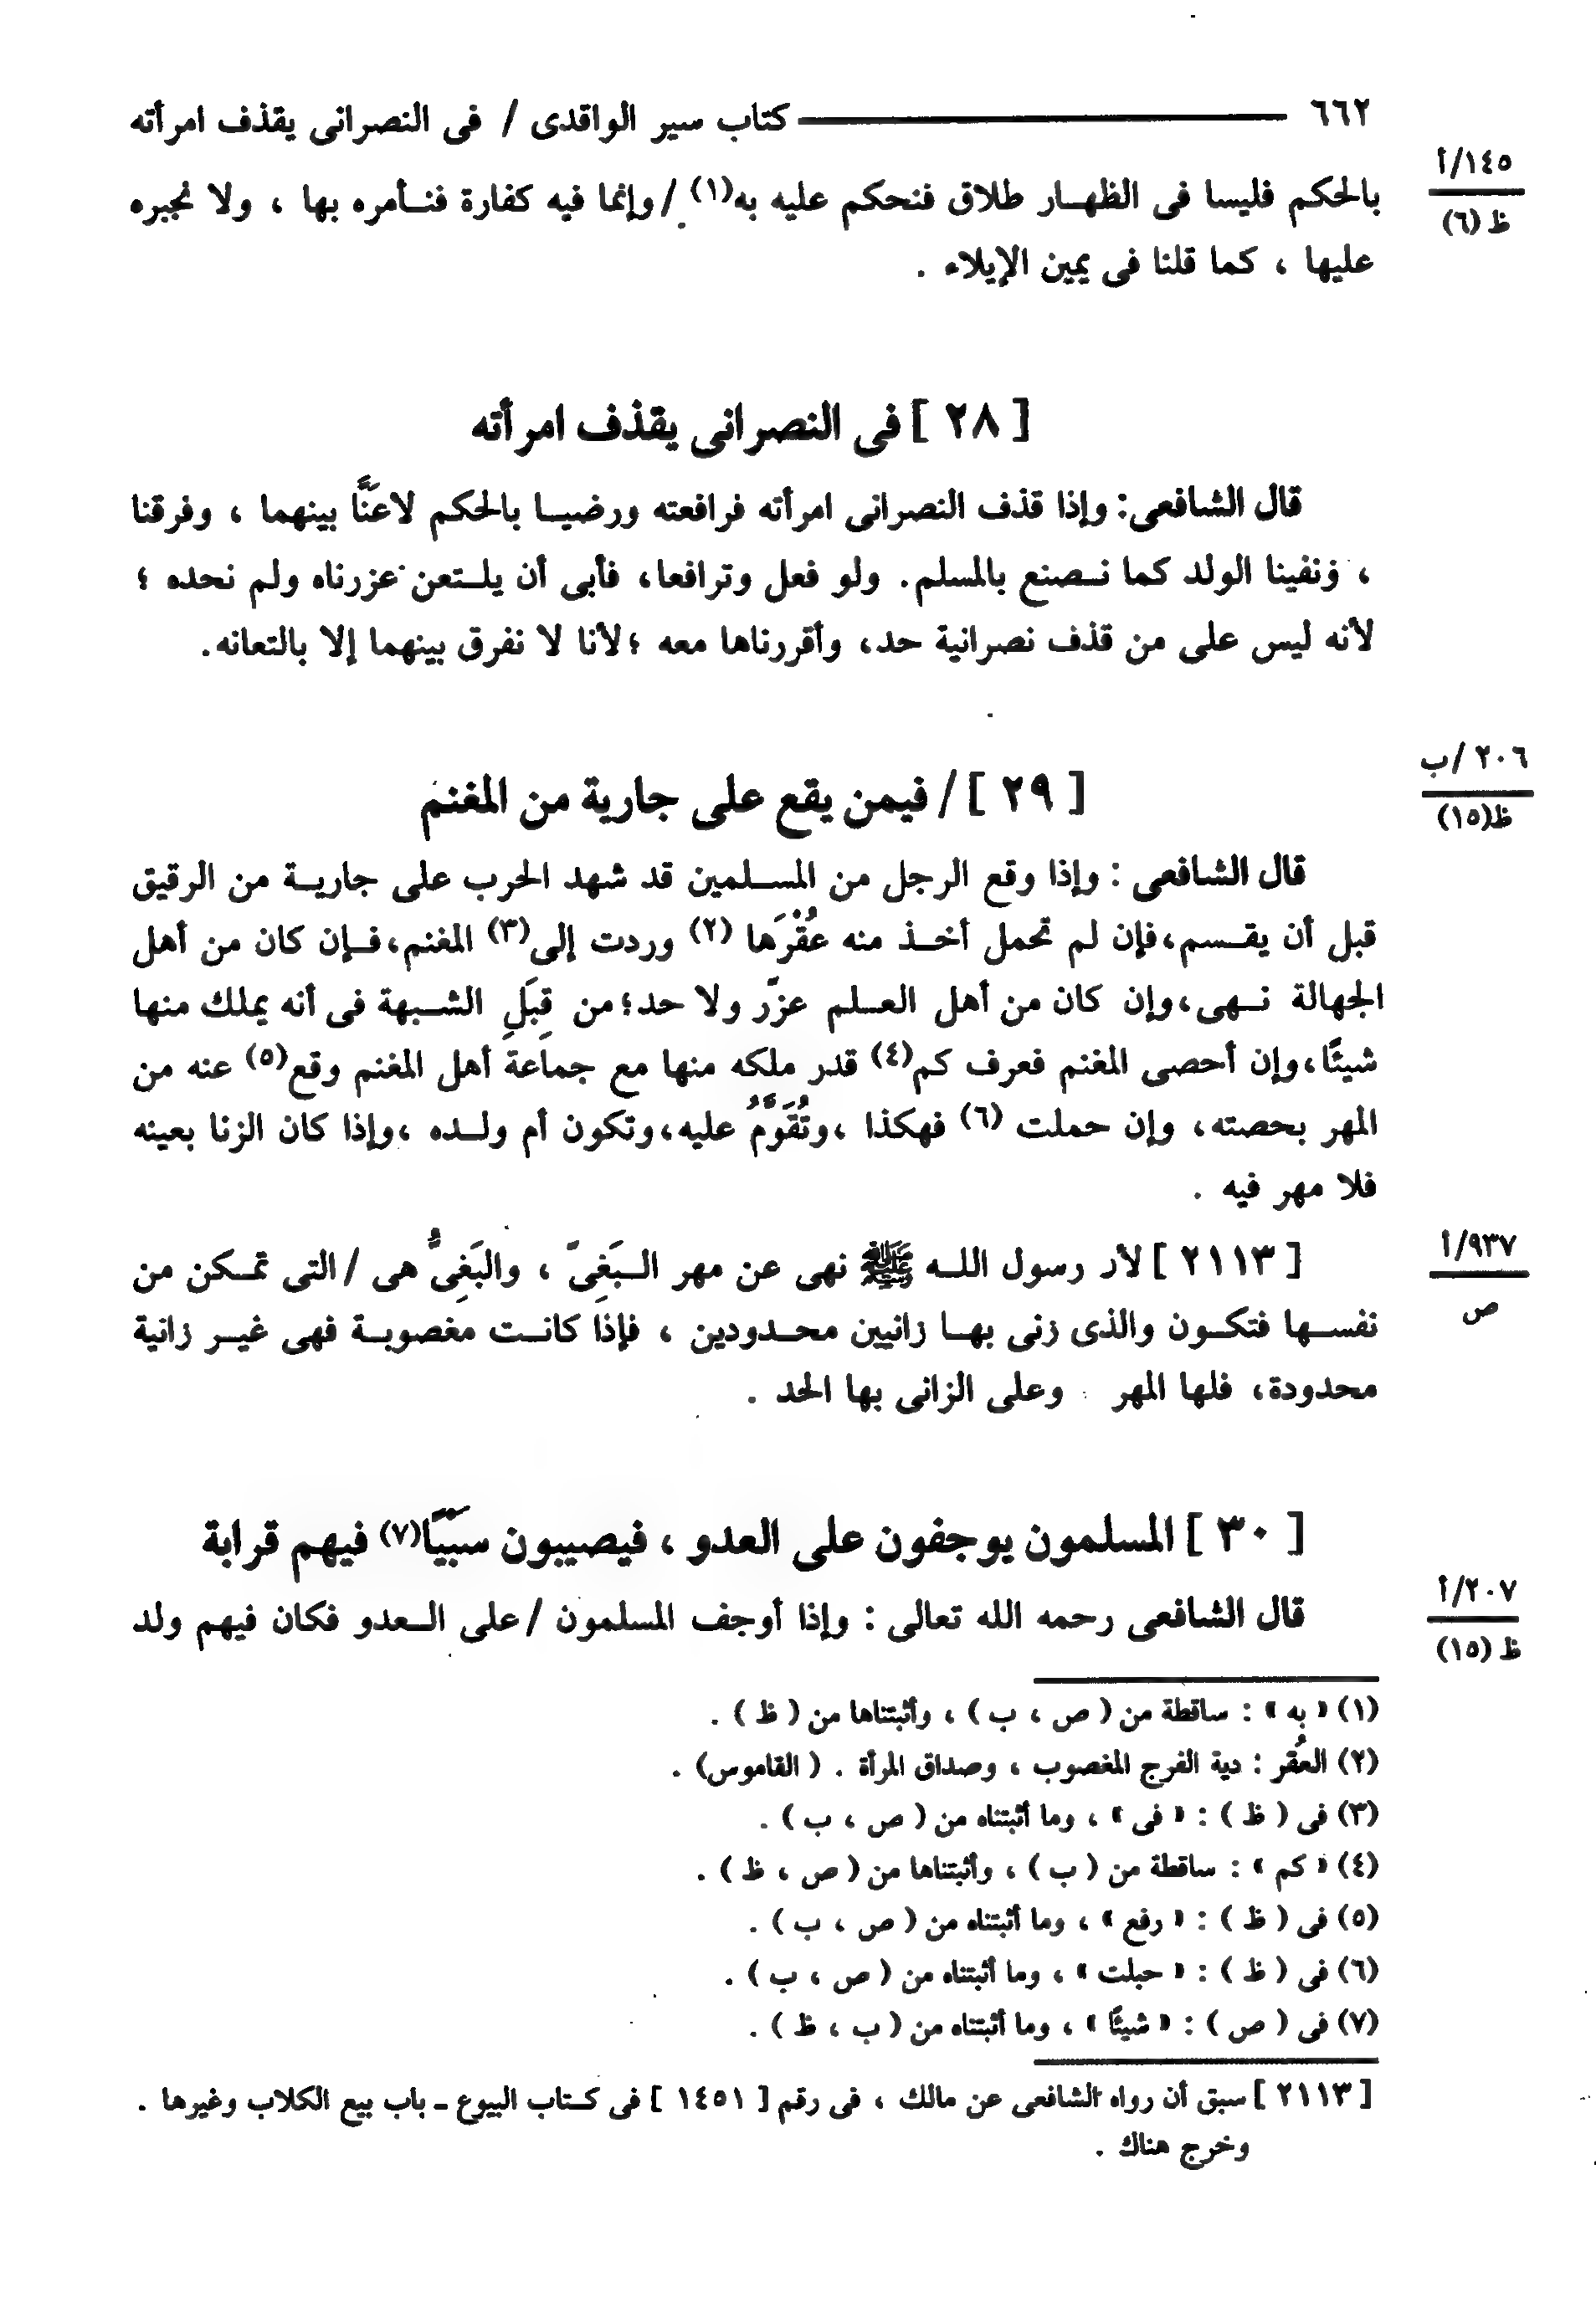 ٦٦٢ ــــــــــــــ كتاب سير الواقدى / فى النصرانى يقذف امرأته
١٤٥/أ
ظ (٦)
بالحكم فليسا فى الظهـار طلاق فنحكم عليه به(١) / وإنما فيه كفارة فنـأمره بها ، ولا نجبره
عليها ، كما قلنا فى يمين الإيلاء .
[ ٢٨ ] فى النصرانى يقذف امرأته
قال الشافعى: وإذا قذف النصرانى امرأته فرافعته ورضيـا بالحكم لاعَنَّا بينهما ، وفرقنا
، ونفينا الولد كما نـصنع بالمسلم. ولو فعل وترافعا، فأبى أن يلـتعن عزرناه ولم نحده ؛
لأنه ليس على من قذف نصرانية حد، وأقررناها معه ؛لأنا لا نفرق بينهما إلا بالتعانه.
٢٠٦ /ب
ظ(١٥)
[ ٢٩ ] / فيمن يقع على جارية من المغنم
قال الشافعى : وإذا وقع الرجل من المسـلمين قد شهد الحرب على جاريـة من الرقيق
قبل أن يقـسم،فإن لم تحمل أخـذ منه عُقْرَها (٢) وردت إلى(٣) المغنم،فـإن كان من أهل
الجهالة نـهى،وإن كان من أهل العـلم عزّر ولا حد؛من قِبَلِ الشـبهة فى أنه يملك منها
شيئًا،وإن أحصى المغنم فعرف كم(٤) قدر ملكه منها مع جماعة أهل المغنم وقع(٥) عنه من
المهر بحصته، وإن حملت (٦) فهكذا ،وتُقَوَّمُ عليه،وتكون أم ولـده ،وإذا كان الزنا بعينه
فلا مهر فيه .
٩٣٧/أ
ص
[ ٢١١٣ ] لأن رسول اللـه ﷺ نهى عن مهر الـبَغِىّ ، والبَغِىُّ هى / التى تمـكن من
نفسـها فتكـون والذى زنى بهـا زانيين محـدودين ، فإذا كانـت مغصوبـة فهى غيـر زانية
محدودة، فلها المهر وعلى الزانى بها الحد .
[ ٣٠ ] المسلمون يوجفون على العدو ، فيصيبون سبَيًّا(٧) فيهم قرابة
٢٠٧/أ
ظ (١٥)
قال الشافعى رحمه الله تعالى : وإذا أوجف المسلمون / على الـعدو فكان فيهم ولد
(١) « به » : ساقطة من ( ص ، ب ) ، وأثبتناها من ( ظ ) .
(٢) العُقر : دية الفرج المغصوب ، وصداق المرأة . ( القاموس) .
(٣) فى ( ظ ) : « فى » ، وما أثبتناه من ( ص ، ب ) .
(٤) « كم » : ساقطة من ( ب ) ، وأثبتناها من ( ص ، ظ ) .
(٥) فى ( ظ ) : « رفع » ، وما أثبتناه من ( ص ، ب ) .
(٦) فى ( ظ ) : « حبلت » ، وما أثبتناه من ( ص ، ب ) .
(٧) فى ( ص ) : « شيئًا » ، وما أثبتناه من ( ب ، ظ ) .
[ ٢١١٣ ] سبق أن رواه الشافعى عن مالك ، فى رقم [ ١٤٥١ ] فى كـتاب البيوع ـ باب بيع الكلاب وغيرها .
وخرج هناك .